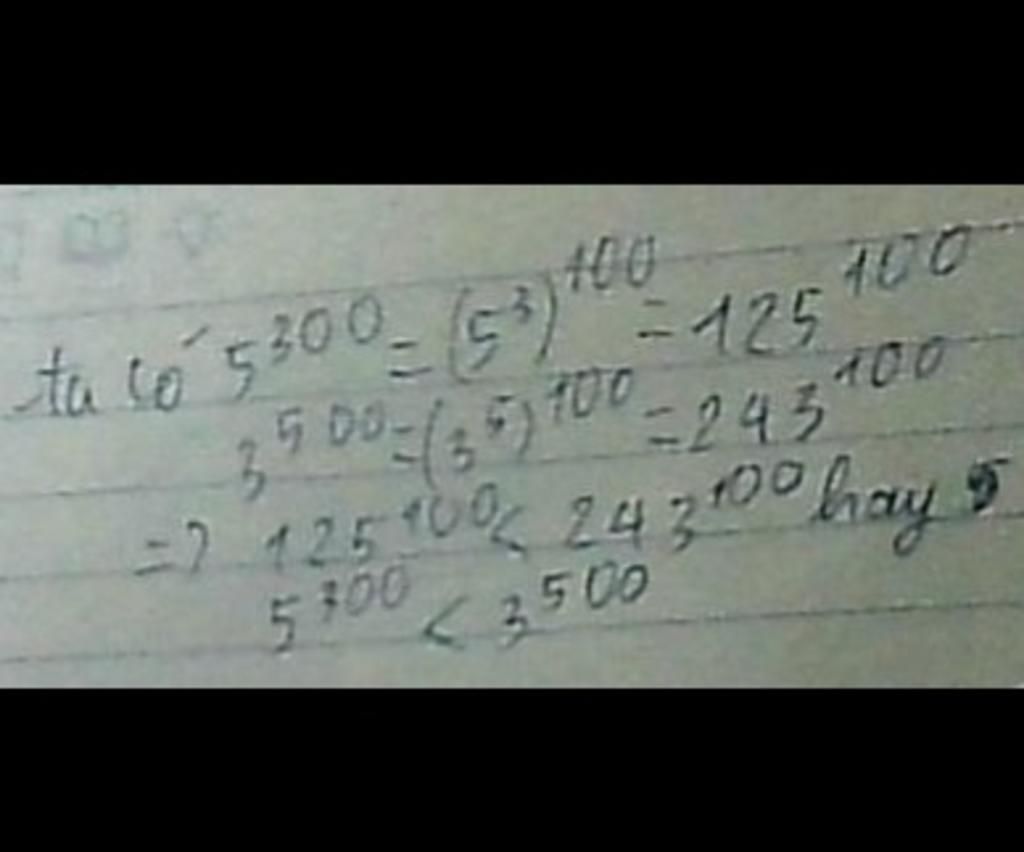 ta có 5³⁰⁰ = (5³)¹⁰⁰ = 125¹⁰⁰
3⁵⁰⁰ = (3⁵)¹⁰⁰ = 243¹⁰⁰
=> 125¹⁰⁰ < 243¹⁰⁰ hay 5
5³⁰⁰ < 3⁵⁰⁰